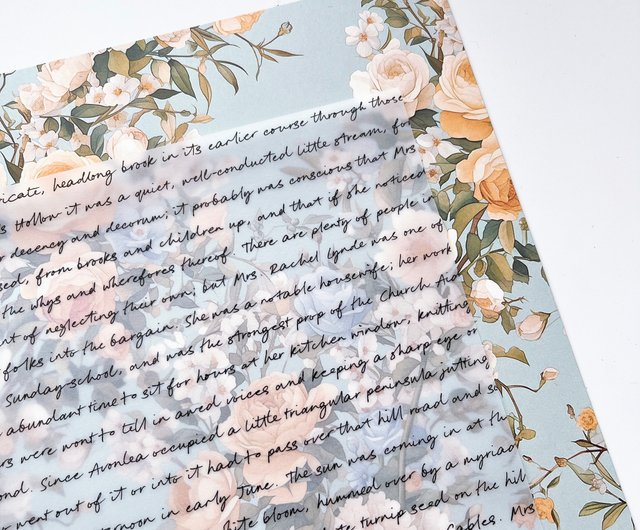 icate, headlong brook in its earlier course through those
s Hollow it was a quiet, well-conducted little stream, for
r decency and decorum; it probably was conscious that Mrs
seat, from brooks and children up, and that if she noticed
the whys and wherefores thereof. There are plenty of people in
nt of neglecting their own; but Mrs. Rachel Lynde was one of
folks into the bargain. She was a notable housewife; her work
Sunday-school, and was the strongest prop of the Church Aid
abundant time to sit for hours at her kitchen window, knitting
rs were wont to tell in awed voices and keeping a sharp eye on
ond. Since Avonlea occupied a little triangular peninsula jutting
o went out of it or into it had to pass over that hill road and s
ernoon in early June. The sun was coming in at the
ite bloom, hummed over by a myriad
te turnip seed on the hill
ables. Mrs